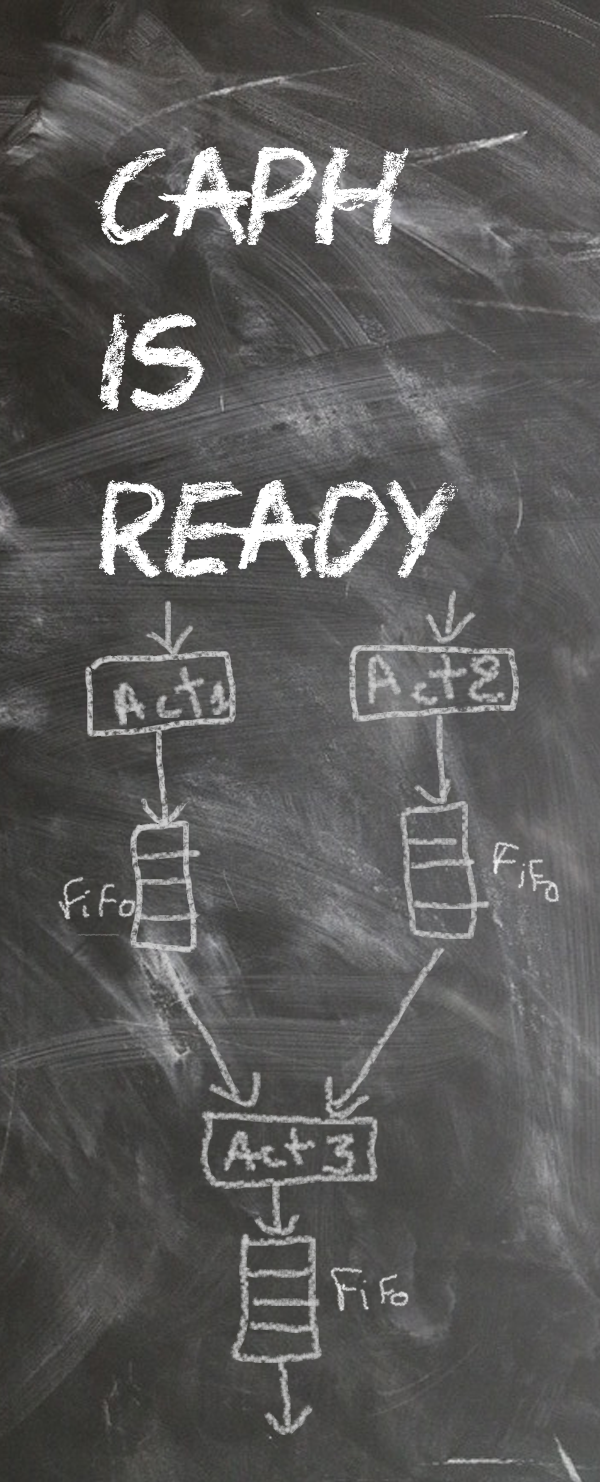 CAPH
IS
READY
Act1
Act2
FiFo
FiFo
Act3
FiFo